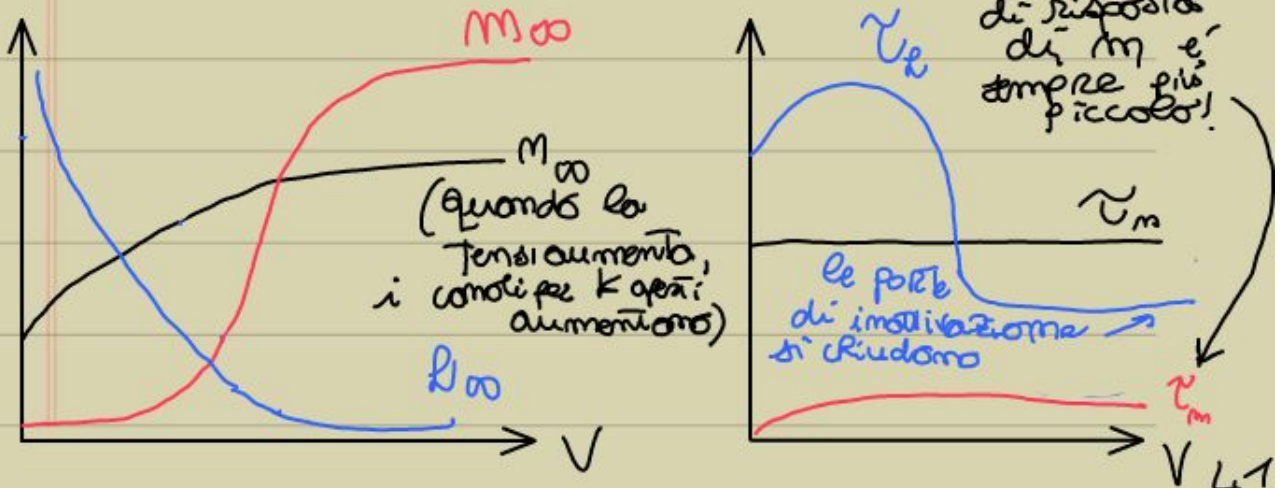 m∞
n∞
(quando la
tensi aumenta,
i canali per K aperti
aumentano)
h∞
V
τh
di risposta
di m e'
sempre più
piccolo!
τn
le porte
di inattivazione
si chiudono
τm
V
41